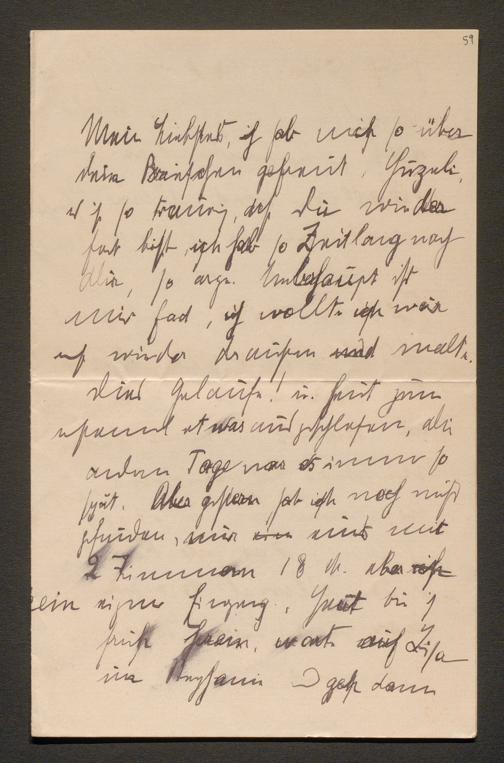 59
Mein Liebstes, ich hab mich so über
dein Briefchen gefreut, Huzuli,
es is so traurig, daß du wieder
fort bist, ich hab so Zeitlang nach
dir, so arg. Überhaupt ist
mir fad, ich wollt ich wär
auch wieder draußen und malte.
dies Gelaufe! u. heut zum
etwas ausgeschlafen, die
andern Tage war es immer so
spät. Aber gestern hab ich noch nichts
gefunden, nur eins mit
2 Zimmern 18 M. aber
kein eigner Eingang. Heut bin ich
früh herein, warte auf Lisa
im Stephanie u geh dann